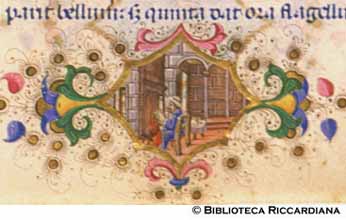 parit bellum: sꝫ quinta dat ora flagelli
© BIBLIOTECA RICCARDIANA